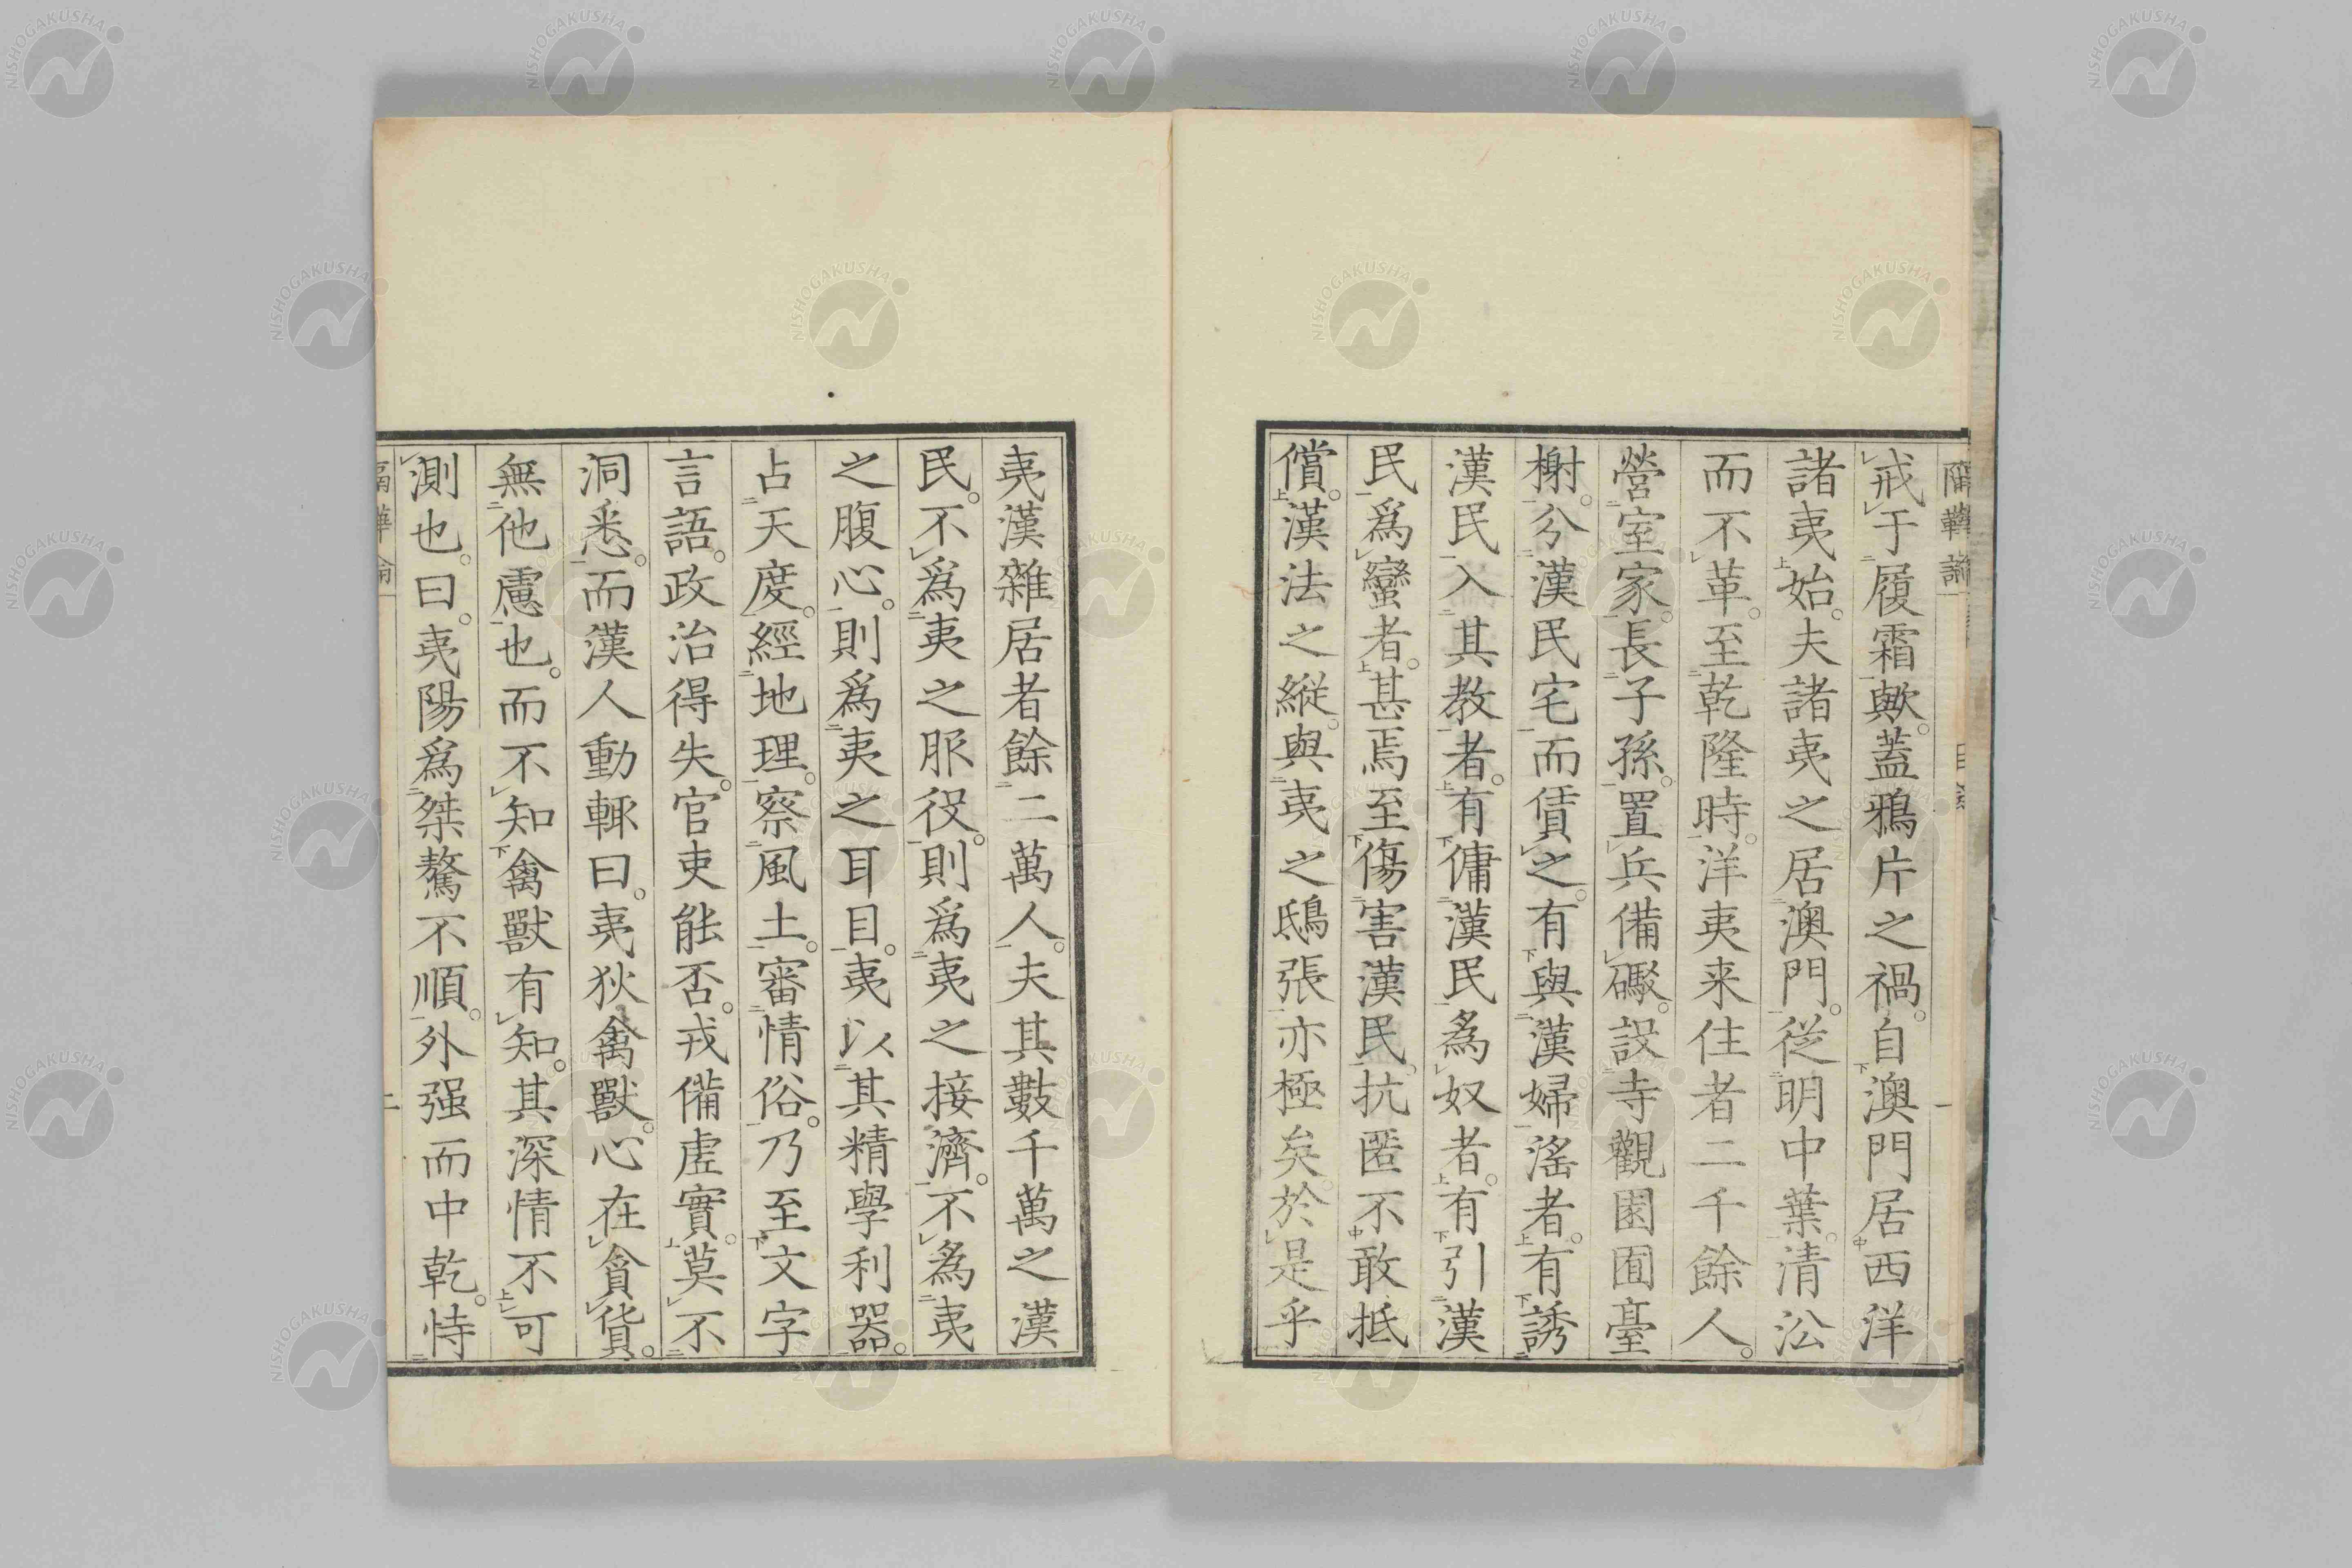 戒于履霜歟。蓋鴉片之禍。自澳門居西洋
諸夷始。夫諸夷之居澳門。従明中葉。清㳂
而不革。至乾隆時。洋夷来住者二千餘人。
營室家。長子孫。置兵備礟。設寺觀園囿臺
榭。分漢民宅而賃之。有與漢婦滛者。有誘
漢民入其教者。有傭漢民為奴者。有引漢
民爲蠻者。甚焉至傷害漢民。抗匿不敢抵
償。漢法之縦。與夷之鴟張亦極矣。於是乎
夷漢雜居者餘二萬人。夫其數千萬之漢
民。不爲夷之服役。則爲夷之接濟。不為夷
之腹心。則爲夷之耳目。夷以其精學利器。
占天度。經地理。察風土。審情俗。乃至文字
言語。政治得失。官吏能否。戎備虚實。莫不
洞悉。而漢人動輙曰。夷狄禽獸。心在貪貨。
無他慮也。而不知禽獸有知。其深情不可
測也。曰。夷陽爲桀驁不順。外强而中乾。恃
二
一
NISHOGAKUSHA